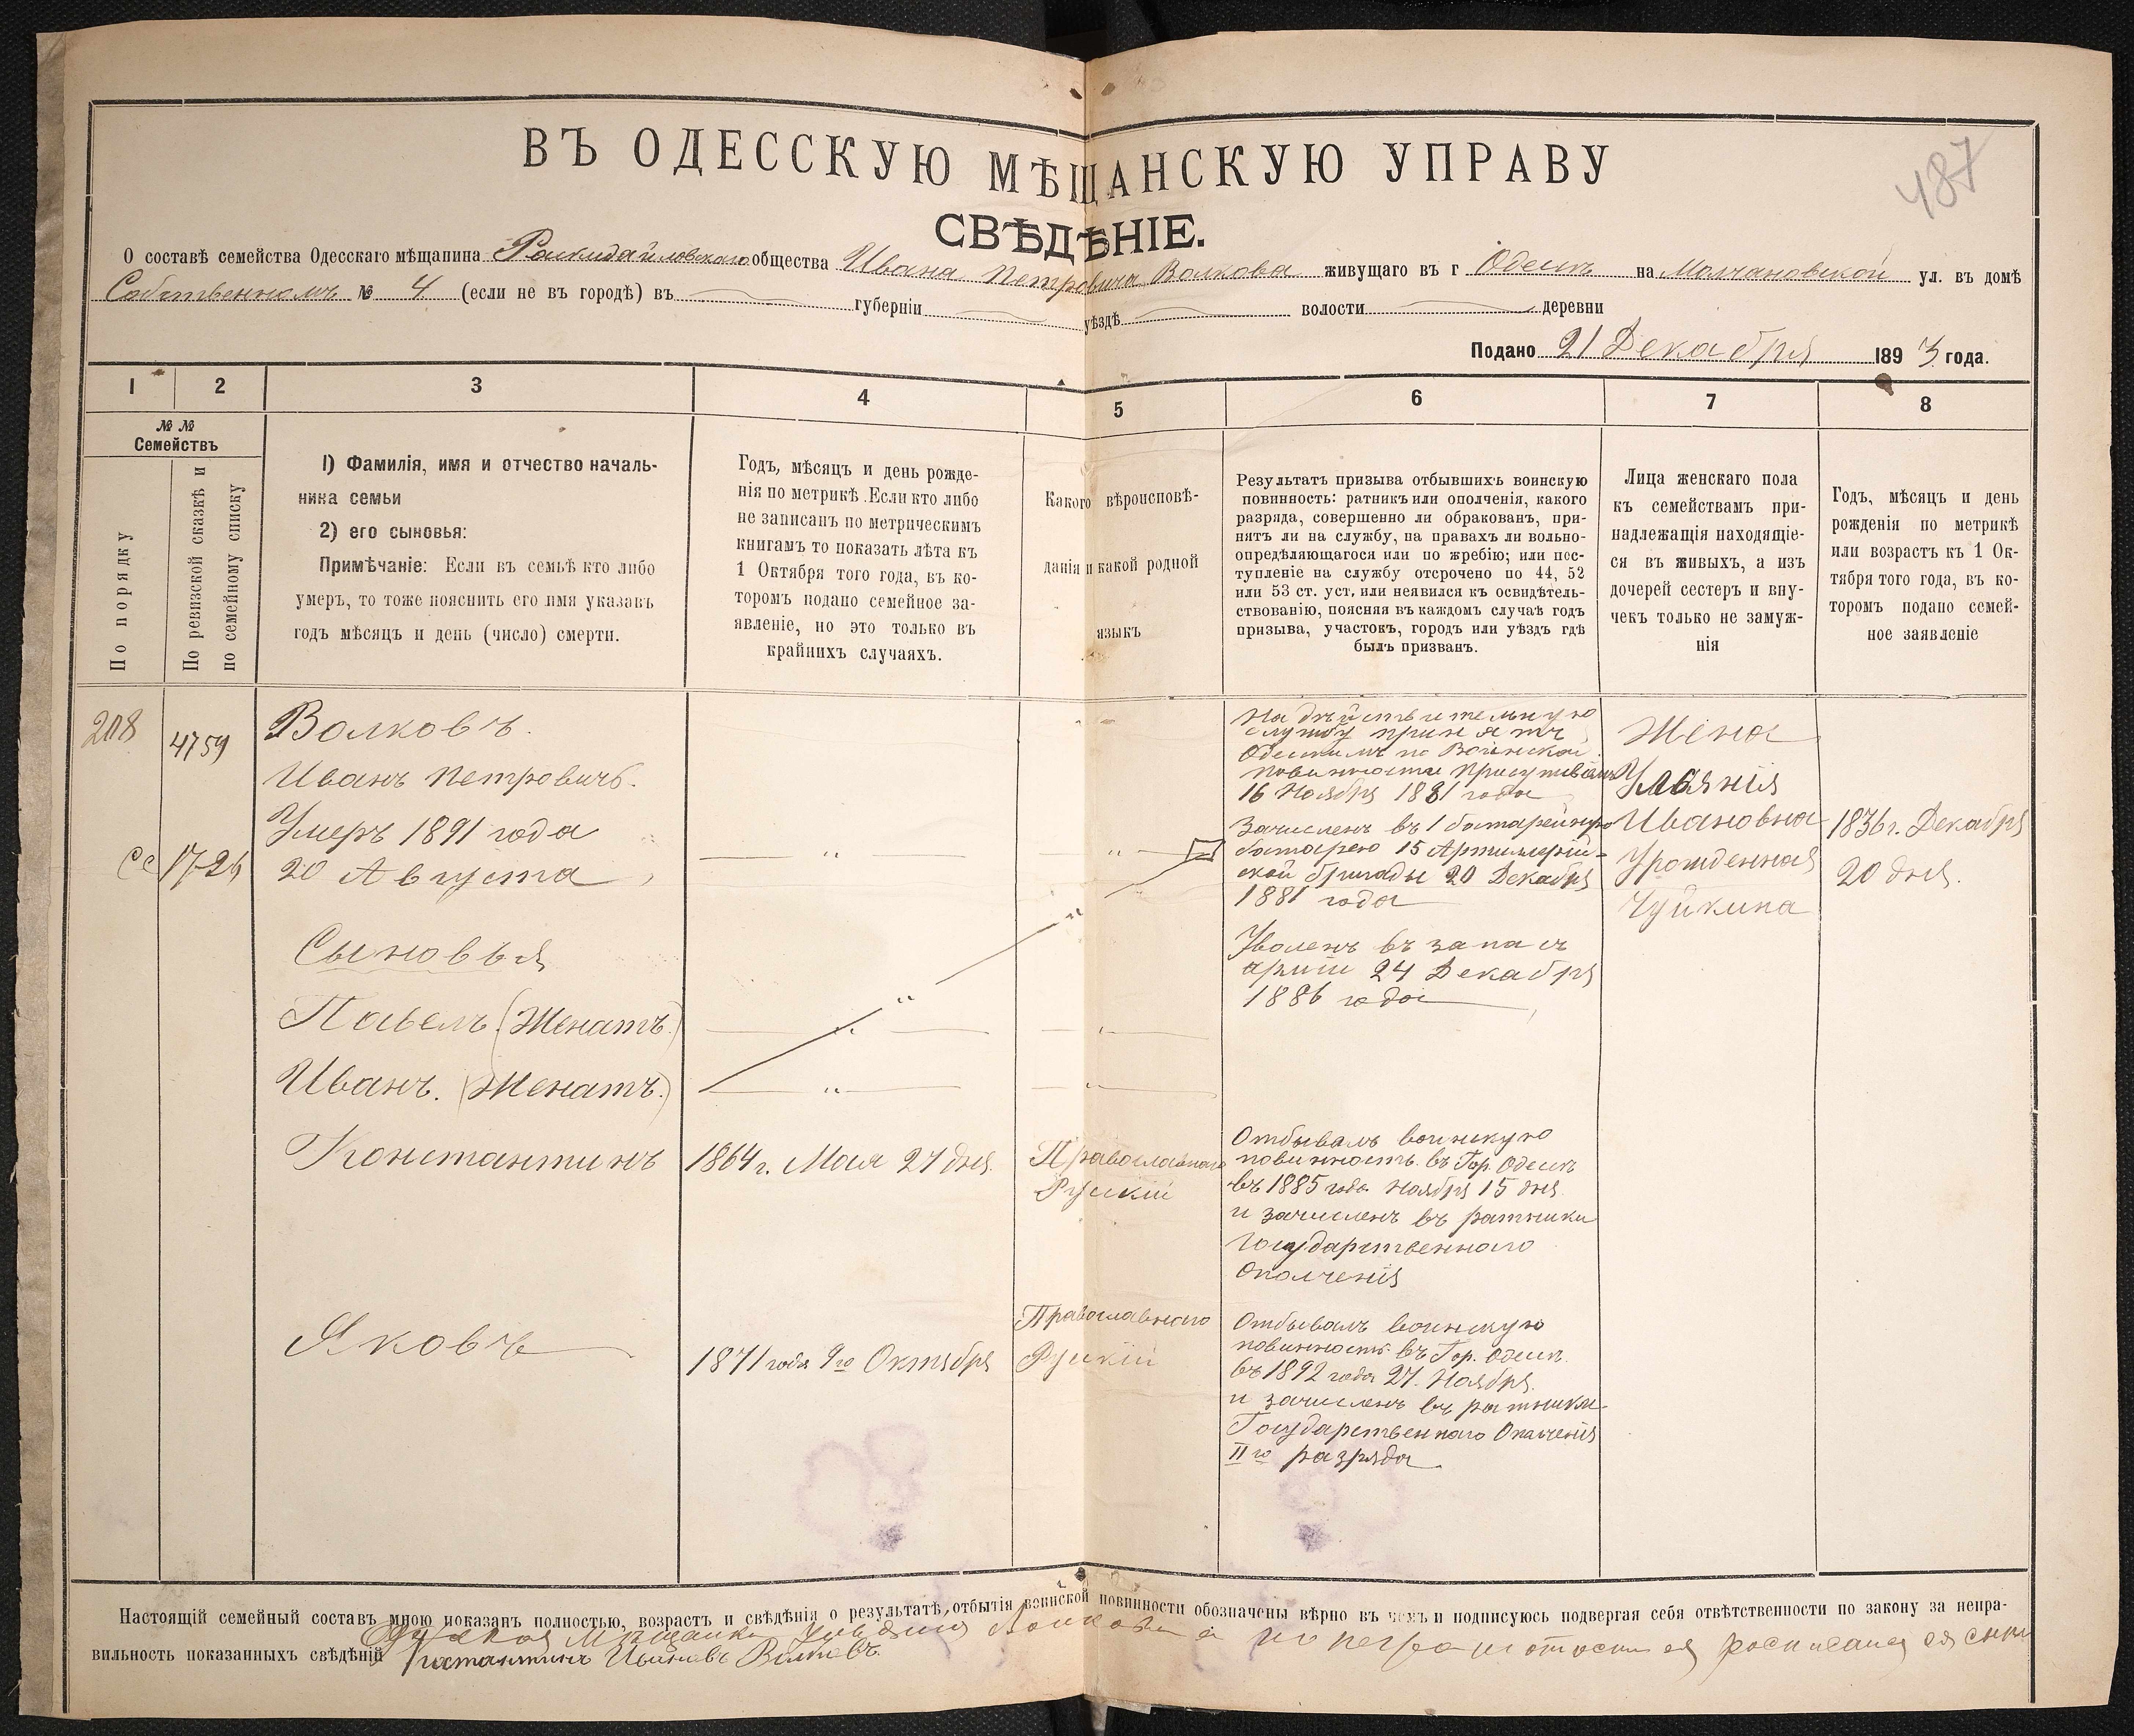 487
ВЪ ОДЕССКУЮ МѢЩАНСКУЮ УПРАВУ
СВѢДѢНІЕ.
О составѣ семейства Одесскаго мѣщанина Раскидайловскаго общества Ивана Петровича Волкова живущаго въ г Одессѣ на Молчановской ул. въ домѣ
Собственномъ № 4 (если не въ городѣ) въ губерніи уѣздѣ волости деревни
Подано 21 Декабря 1893 года.
1 2 3 4 5 6 7 8
№ №
Семействъ
По порядку
По ревизской сказкѣ и
по семейному списку
1) Фамилія, имя и отчество началь-
ника семьи
2) его сыновья:
Примѣчаніе: Если въ семьѣ кто либо
умеръ, то тоже пояснить его имя указавъ
годъ мѣсяцъ и день (число) смерти.
Годъ, мѣсяцъ и день рожде-
нія по метрикѣ. Если кто либо
не записанъ по метрическимъ
книгамъ то показать лѣта къ
1 Октября того года, въ ко-
торомъ подано семейное за-
явленіе, но это только въ
крайнихъ случаяхъ.
Какого вѣроисповѣ-
данія и какой родной
языкъ
Результатъ призыва отбывшихъ воинскую
повинность: ратникъ или ополченія, какого
разряда, совершенно ли обракованъ, при-
нятъ ли на службу, на правахъ ли вольно-
опредѣляющагося или по жребію; или пос-
тупленіе на службу отсрочено по 44, 52
или 53 ст. уст, или неявился къ освидѣтель-
ствованію, поясняя въ каждомъ случаѣ годъ
призыва, участокъ, городъ или уѣздъ гдѣ
былъ призванъ.
Лица женскаго пола
къ семействамъ при-
надлежащія находящіе-
ся въ живыхъ, а изъ
дочерей сестеръ и вну-
чекъ только не замуж-
нія
Годъ, мѣсяцъ и день
рожденія по метрикѣ
или возрастъ къ 1 Ок-
тября того года, въ ко-
торомъ подано семей-
ное заявленіе
208
4759
Волковъ.
Иванъ Петровичъ.
Умеръ 1891 года
20 Августа
На дѣйствительную
службу принятъ
Одесскимъ по Воинской
повинности Присутствіемъ
16 Ноября 1881 года
Зачисленъ въ 1 батарейную
батарею 15 Артиллерій-
ской бригады 20 Декабря
1881 года
Уволенъ въ запасъ
арміи 24 Декабря
1886 года
Жена
Ульянія
Ивановна
Урожденная
Чуйкина
1836 г. Декабря
20 дня.
Сыновья
Павелъ (Женатъ.)
Иванъ. (Женатъ.)
Константинъ
1864 г. Мая 27 дня.
Православнаго
Русскій
Отбывалъ воинскую
повинность въ Гор. Одессѣ
въ 1885 года Ноября 15 дня
и зачисленъ въ ратники
Государственнаго
Ополченія
Яковъ
1871 года 9го Октября
Православнаго
Русскій
Отбывалъ воинскую
повинность въ Гор. Одессѣ.
въ 1892 года 27. Ноября.
и зачисленъ въ ратники
Государственнаго Ополченія
II го разряда.
Настоящій семейный составъ мною показанъ полностью, возрастъ и свѣдѣнія о результатѣ, отбытія воинской повинности обозначены вѣрно въ чемъ и подписуюсь подвергая себя отвѣтственности по закону за непра-
вильность показанныхъ свѣдѣній
Константинъ Ивановъ Волковъ.